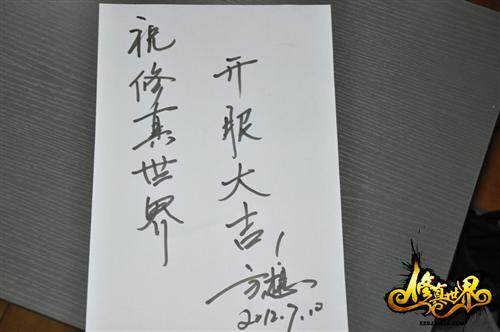 祝修真世界
开服大吉！
方想
2012.7.10
修真世界